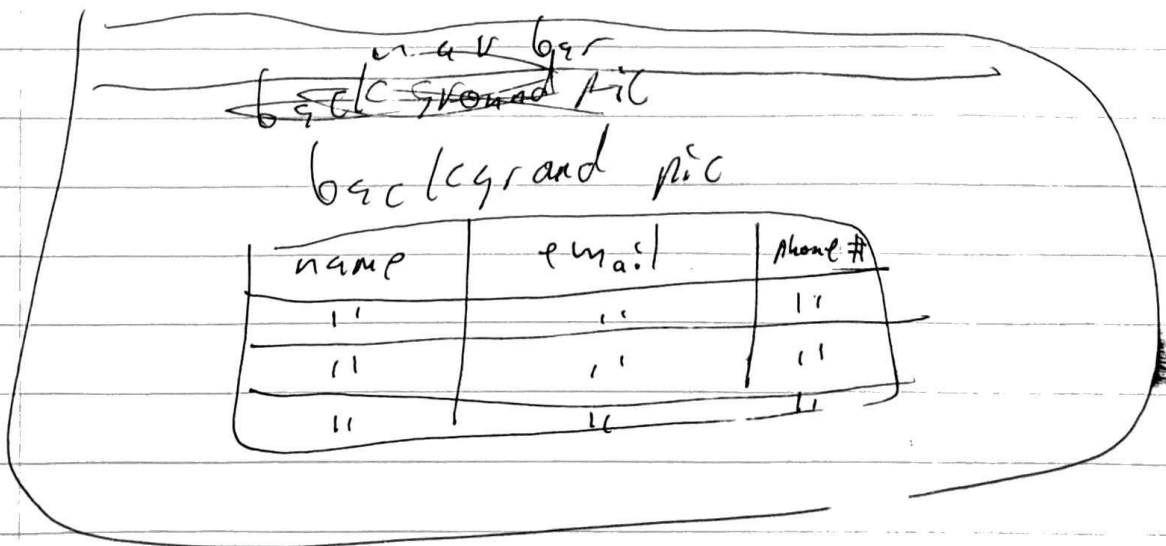 nav bar
background pic
backgrand pic
name email phone #
" " "
" " "
" " "